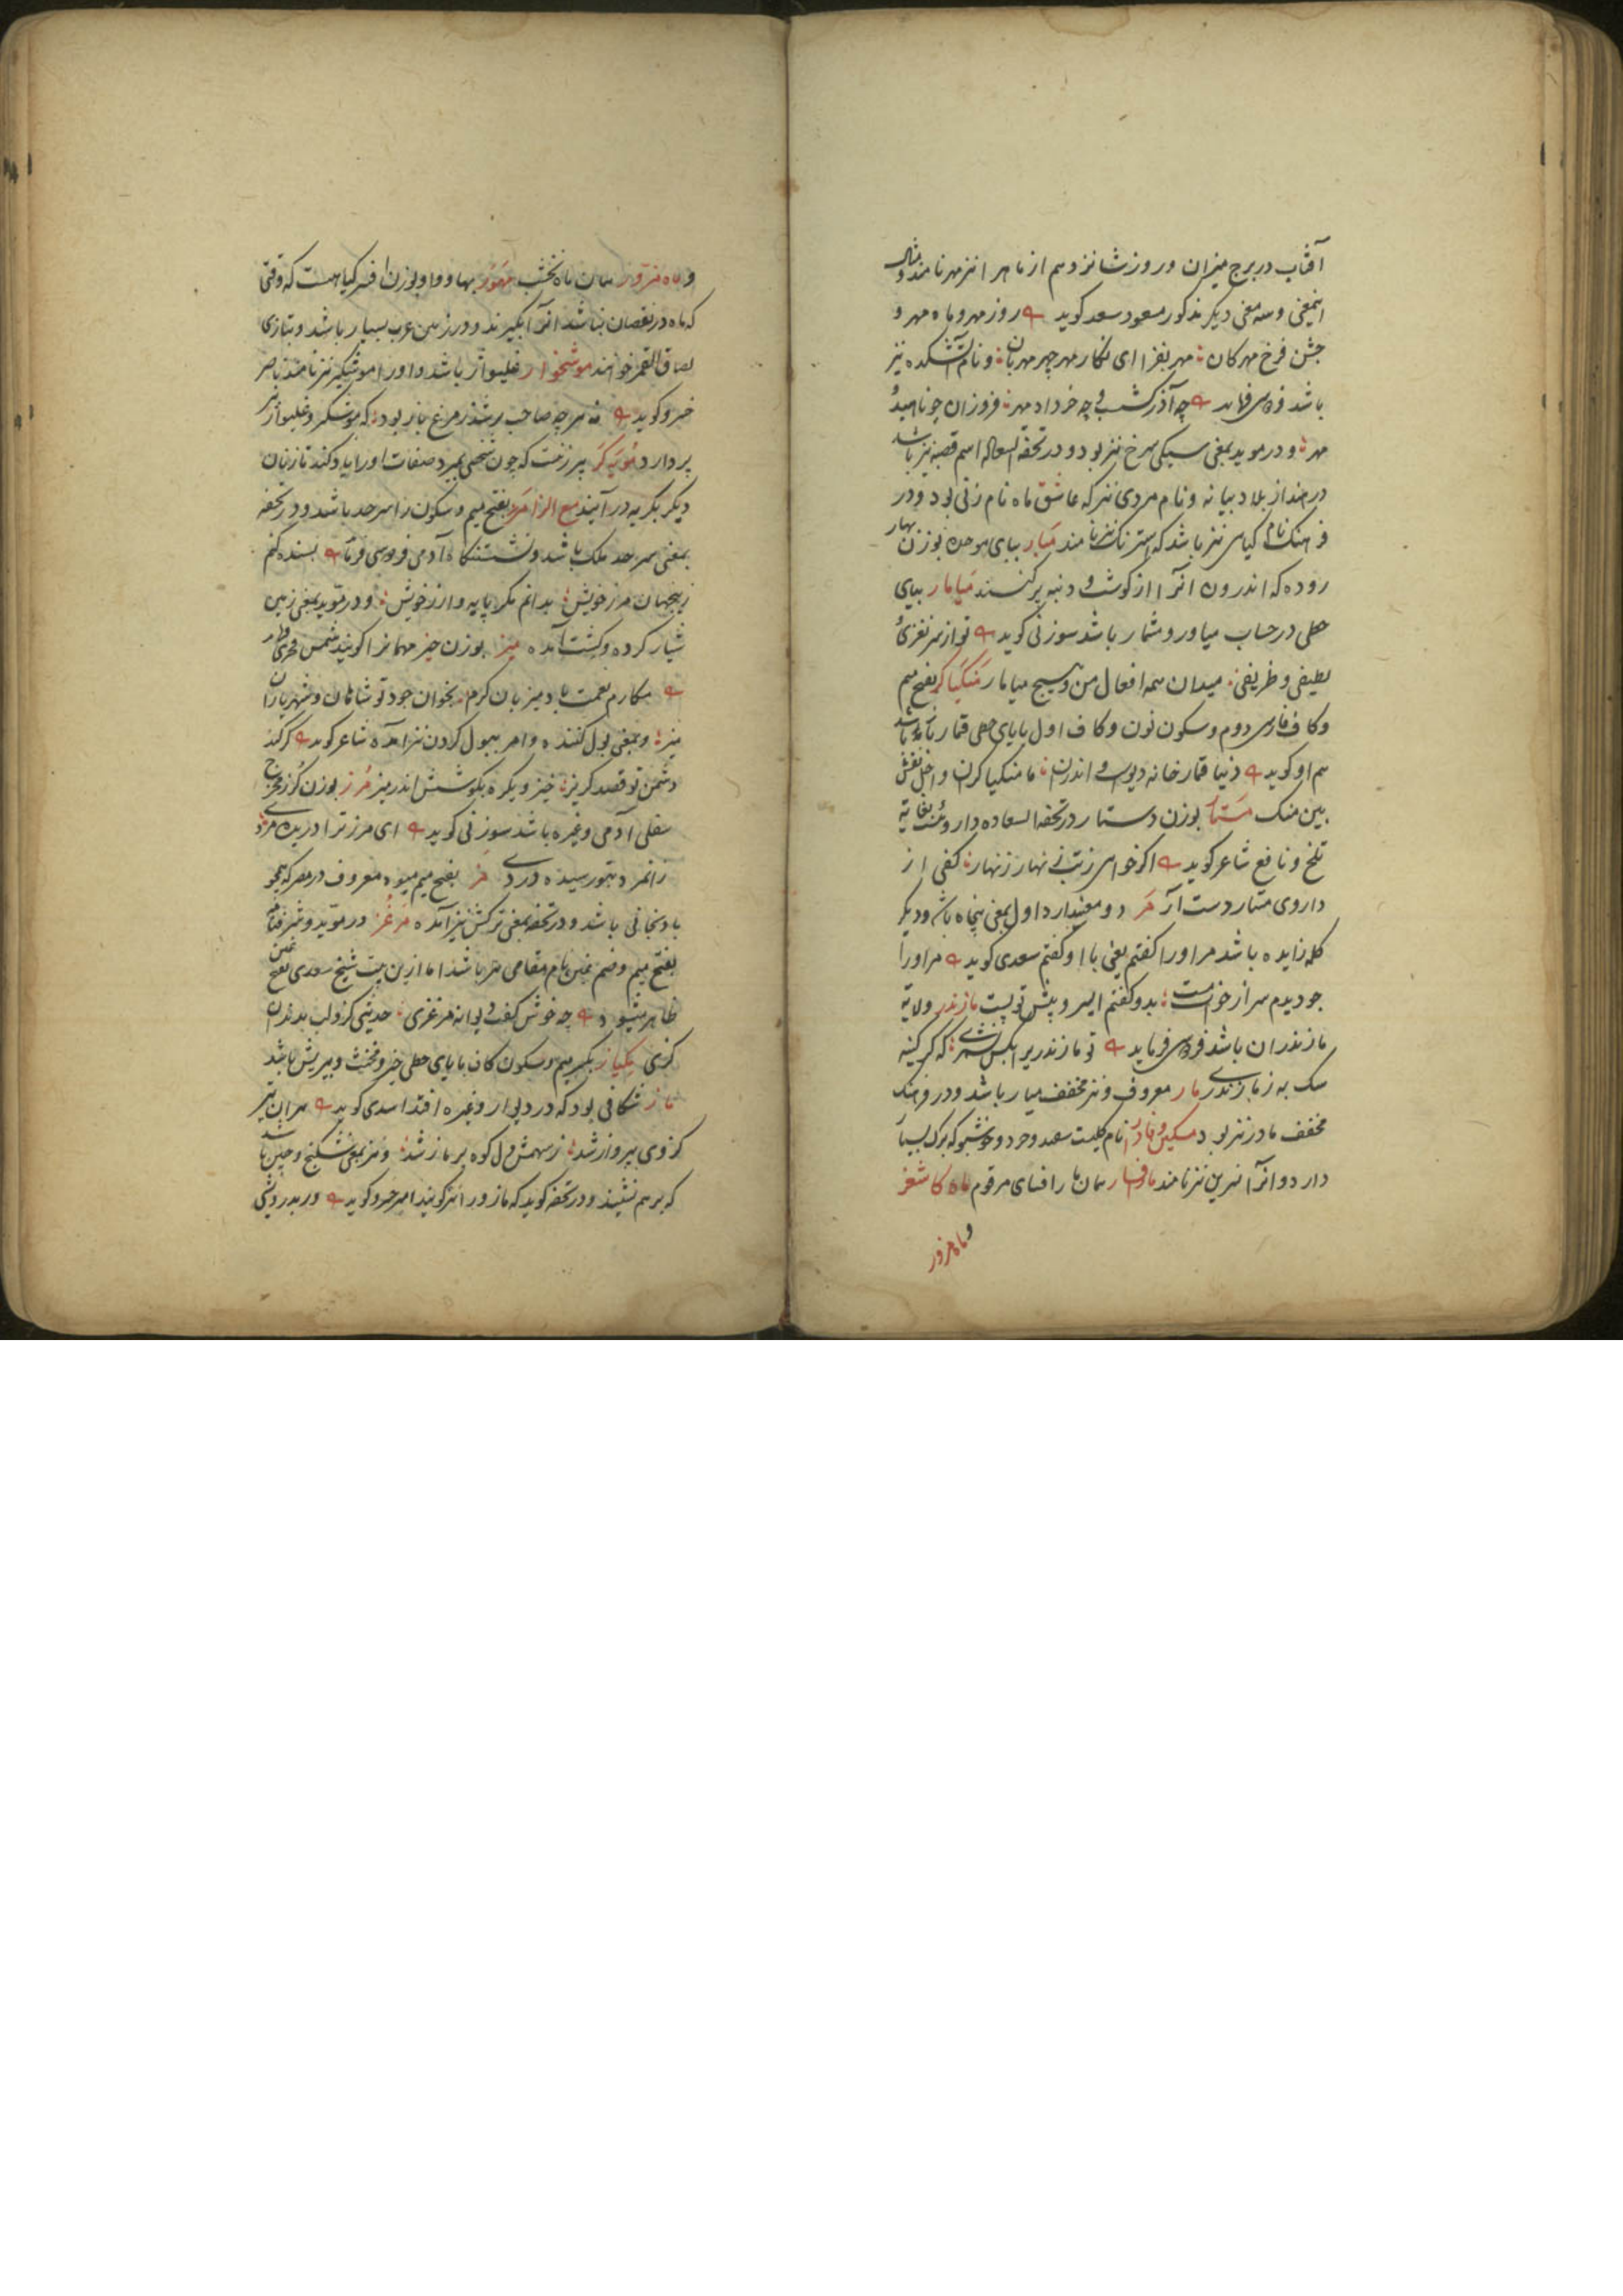 آفتاب در برج میزان و روز شانزدهم از ماهرا نیز مهر نامند و مثال
اینمعنی و سه معنی دیکر مذکور مسعود سعد کوید روز مهر و ماه مهر و
جشن فرخ مهرکان مهر بفزا ای نکار مهر چهر مهربان و نام آتشکده نیز
باشد فردوسی فرماید چه آذرکشسب و چه خرداد مهر فروزان چو ناهید و
مهر و در موید بمعنی سنکی سرخ نیز بود و در تحفة السعاده اسم قصبه نیز باشد
در هند از بلاد میانه و نام مردی نیز که عاشق ماه نام زنی بود و در
فرهنک نام کیاهی نیز باشد که استرنک نیز نامند مبار ببای موحده بوزن بهار
روده که اندرون آنرا از کوشت و دنبه پر کنند میامار بیای
حطی در حساب میاور و مشمار باشد سوزنی کوید تو از سر نغزی و
لطیفی و ظریفی میدان همه افعال من و هیچ میامار منکیاکر بفتح میم
و کاف فارسی دوم و سکون نون و کاف اول با یای حطی قمار باز باشد
هم او کوید دنیا قمار خانه دیوست و اندران ما منکیاکران و اجل نقش
بین منک مستار بوزن دستار در تحفة السعاده داروئیست بغایة
تلخ و نافع شاعر کوید اکر خواهی زتب زنهار زنهار کفی از
داروی مستار دست آر مر دو معنیدارد اول بمعنی پنجاه باشد و دیکر
کلمه زایده باشد مر او را کفتم یعنی با او کفتم سعدی کوید مر او را
چو دیدم سر از خواب مست بدو کفتم ای سرو پیش تو پست مازندر ولایة
مازندران باشد فردوسی فرماید تو مازندریرا بکس نشمری که کر کینه
سک به ز مازندری مار معروف و نیز مخفف میار باشد و در فرهنک
مخفف مادر نیز بود مسکین و مادر نام کلیست سفید و خرد و خوشبو که برک بسیار
دارد و آنرا نسرین نیز نامند مافسار همان مارافسای مرقوم ماه کاشغر
و ماه مزور
و ماه مزور همان ماه نخشب مهور بها و واو بوزن افسر کیاهیست که وقتی
که ماه در نقصان نباشد آنرا بکیرند و در زمین عرب بسیار باشد و بتازی
بصاق القمر خوانند موشخوار غلیواژ باشد و او را موشکیر نیز نامند ناصر
خسرو کوید نه هر چه صاحب پر شد ز مرغ باز بود که موشکیر و غلیواژ نیز
پر دارد مویه کر پیر زنست که چون شخصی بمیرد صفات او را یاد کند تا زنان
دیکر بکریه در آیند مع الزا مرز بفتح میم و سکون را سر حد باشد و در تحفه
بمعنی سر حد ملک باشد و نشستنکاه آدمی فردوسی فرماید بسنده کنم
زین جهان مرز خویش بدانم مکر پایه و ارز خویش و در موید بمعنی زمین
شیار کرده و کشت آمده میز بوزن چیز مهمانرا کویند شمس فخری
مکارم نعمت باد میزبان کرم بخوان جود تو شاهان و شهریاران
میز و بمعنی بول کننده و امر ببول کردن نیز آمده شاعر کوید کر کند
دشمن تو قصد کریز خیز و بکره بکوشش اندر میز مرز بوزن کرز مخرج
سفلی آدمی و غیره باشد سوزنی کوید ای مرز ترا دریده مردی
زانمرد بتو رسیده دردی مز بفتح میم میوه معروف در مصر که همچو
بادنجانی باشد و در تحفه بمعنی ترکش نیز آمده مرغز در موید و شرفنامه
بفتح میم و ضم غین نام مقامی هم باشد اما ازین بیت شیخ سعدی بفتح غین
ظاهر میشود چه خوش کفت دیوانه مرغزی حدیثی کزو لب بدندان
کزی مکیاز بکسر میم و سکون کاف با یای حطی حیز و مخنث و بیریش باشد
ماز شکافی بود که در دیوار و غیره افتد اسدی کوید هر آن تیر
کزوی بپرواز شد ز سهمش دل کوه پر ماز شد و نیز بمعنی شکنج و چین باشد
که بر هم نشیند و در تحفه کوید که مازو را نیز کویند امیر خسرو کوید ور بدر رویش